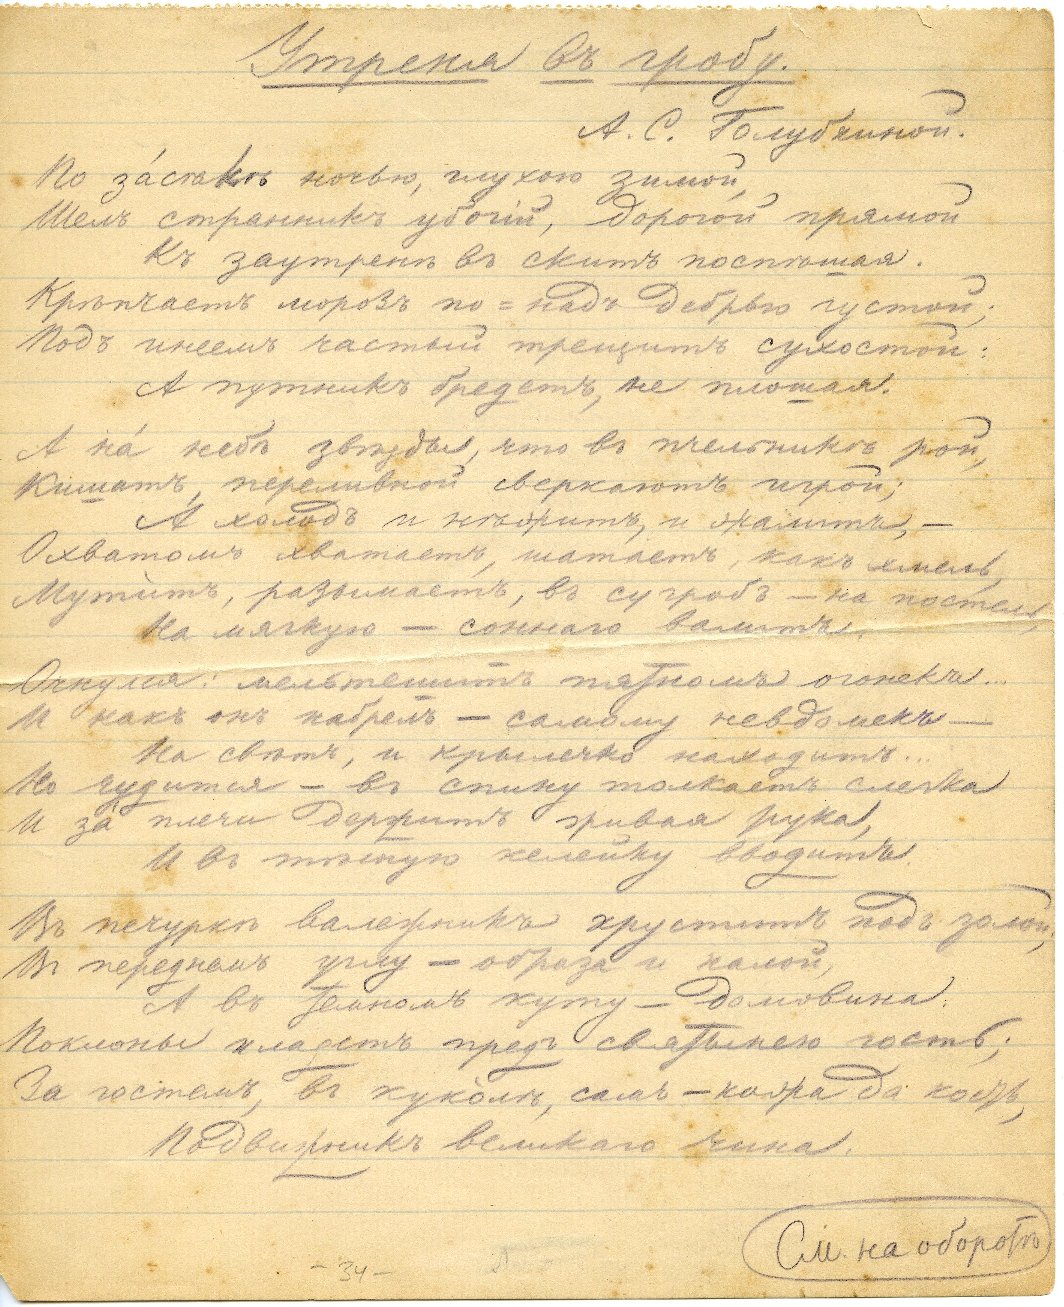 Утреня въ гробу.
А. С. Голубкиной.
По за́стакъ ночью, глухою зимой,
Шелъ странникъ убогій, дорогой прямой
Къ заутренѣ въ скитъ поспѣшая.
Крѣпчаетъ морозъ по = надъ дебрью густой;
Подъ инеемъ частый трещитъ сухостой:
А путникъ бредетъ, не плошая.
А на́ небѣ звѣзды, что въ пчельникѣ рой,
Кишатъ, переливной сверкаютъ игрой;
А холодъ и нѣжитъ, и жалитъ, —
Охватомъ хватаетъ, шатаетъ, какъ хмель,
Мутитъ, разымаетъ, въ сугробъ — на постель,
На мягкую — соннаго валитъ.
Очнулся: мельтешитъ пятномъ огонекъ...
И какъ онъ набрелъ — самому невдомекъ —
На свѣтъ, и крылечко находитъ...
Но чудится — въ спину толкаетъ слегка
И за́ плечи держитъ живая рука,
И въ тѣсную келейку вводитъ.
Въ печуркѣ валежникъ хруститъ подъ золой;
Въ переднемъ углу — образа и налой,
А въ темномъ куту — домовина.
Поклоны кладетъ предъ святынею гость;
За гостемъ, въ куколѣ, самъ — кожа да кость,
Подвижникъ великаго чина.
См. на оборотѣ
— 34 —